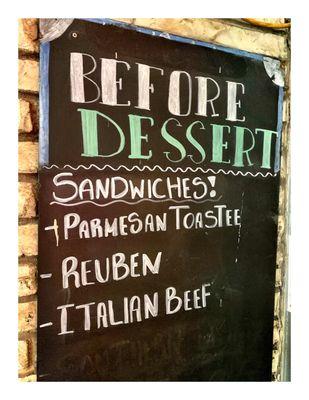 BEFORE
DESSERT
SANDWICHES!
- PARMESAN TOASTEE
- REUBEN
- ITALIAN BEEF